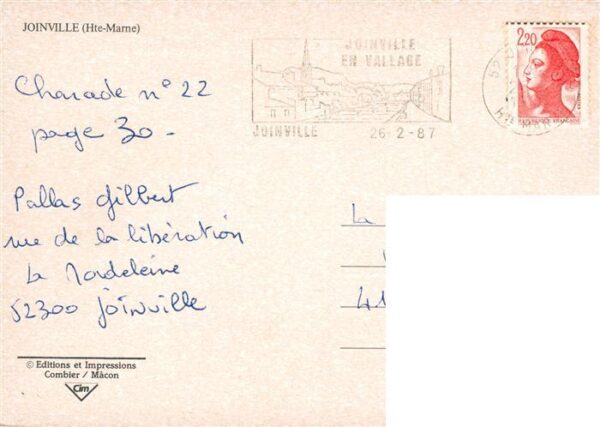 JOINVILLE (Hte-Marne)
JOINVILLE
EN VALLAGE
JOINVILLE
26-2-87
2,20
Charade n° 22
page 30 -
Pallas Gilbert
rue de la libération
La
52300 Joinville
La
41
© Editions et Impressions
Combier / Mâcon
Cim